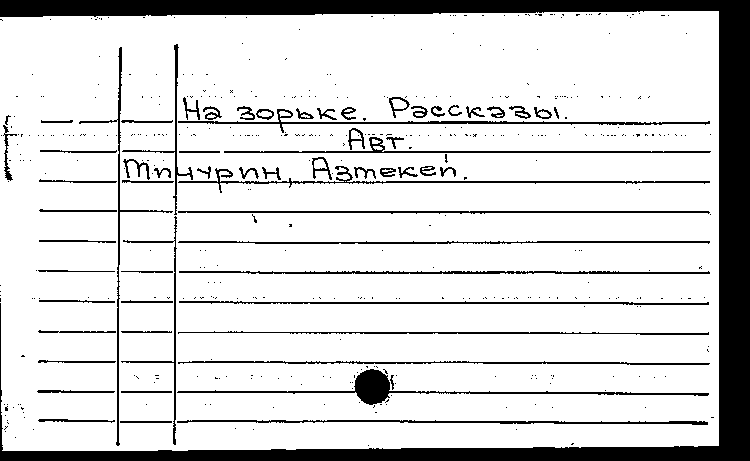 На зорьке. Рассказы.
Авт.
Тичурин, Азтекей.